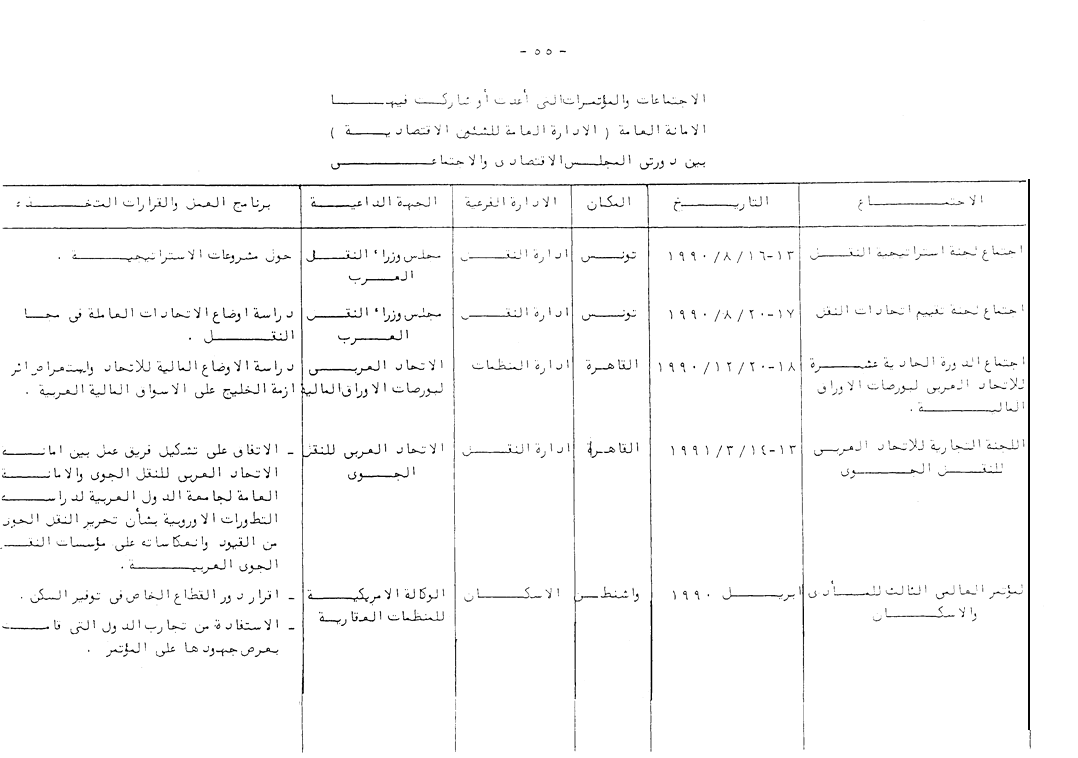 - ٥٥ -
الاجتماعات والمؤتمرات التى أعدت أو شاركت فيها
الامانة العامة ( الادارة العامة للشئون الاقتصادية )
بين دورتى المجلس الاقتصادى والاجتماعى
الاجتماع
التاريخ
المكان
الادارة الفرعية
الجهة الداعية
برنامج العمل والقرارات المتخذة
اجتماع لجنة استراتيجية النقل
١٣-١٦/٨/١٩٩٠
تونس
ادارة النقل
مجلس وزراء النقل
العرب
حول مشروعات الاستراتيجية .
اجتماع لجنة تقييم اتحادات النقل
١٧-٢٠/٨/١٩٩٠
تونس
ادارة النقل
مجلس وزراء النقل
العرب
دراسة اوضاع الاتحادات العاملة فى مجا
النقل .
اجتماع الدورة الحادية عشرة
للاتحاد العربى لبورصات الاوراق
المالية .
١٨-٢٠/١٢/١٩٩٠
القاهرة
ادارة المنظمات
الاتحاد العربى
لبورصات الاوراق المالية
دراسة الاوضاع المالية للاتحاد واستعراض اثر
ازمة الخليج على الاسواق المالية العربية .
اللجنة التجارية للاتحاد العربى
للنقل الجوى
١٣-١٤/٣/١٩٩١
القاهرة
ادارة النقل
الاتحاد العربى للنقل
الجوى
- الاتفاق على تشكيل فريق عمل بين امانة
الاتحاد العربى للنقل الجوى والامانة
العامة لجامعة الدول العربية لدراسة
التطورات الاوروبية بشأن تحرير النقل الجوى
من القيود وانعكاساته على مؤسسات النقل
الجوى العربية .
لمؤتمر العالمى الثالث للمأدى
والاسكان
ابريل ١٩٩٠
واشنطن
الاسكان
الوكالة الامريكية
للمنظمات العقارية
- اقرار دور القطاع الخاص فى توفير السكن .
- الاستفادة من تجارب الدول التى قامت
بعرض جهودها على المؤتمر .